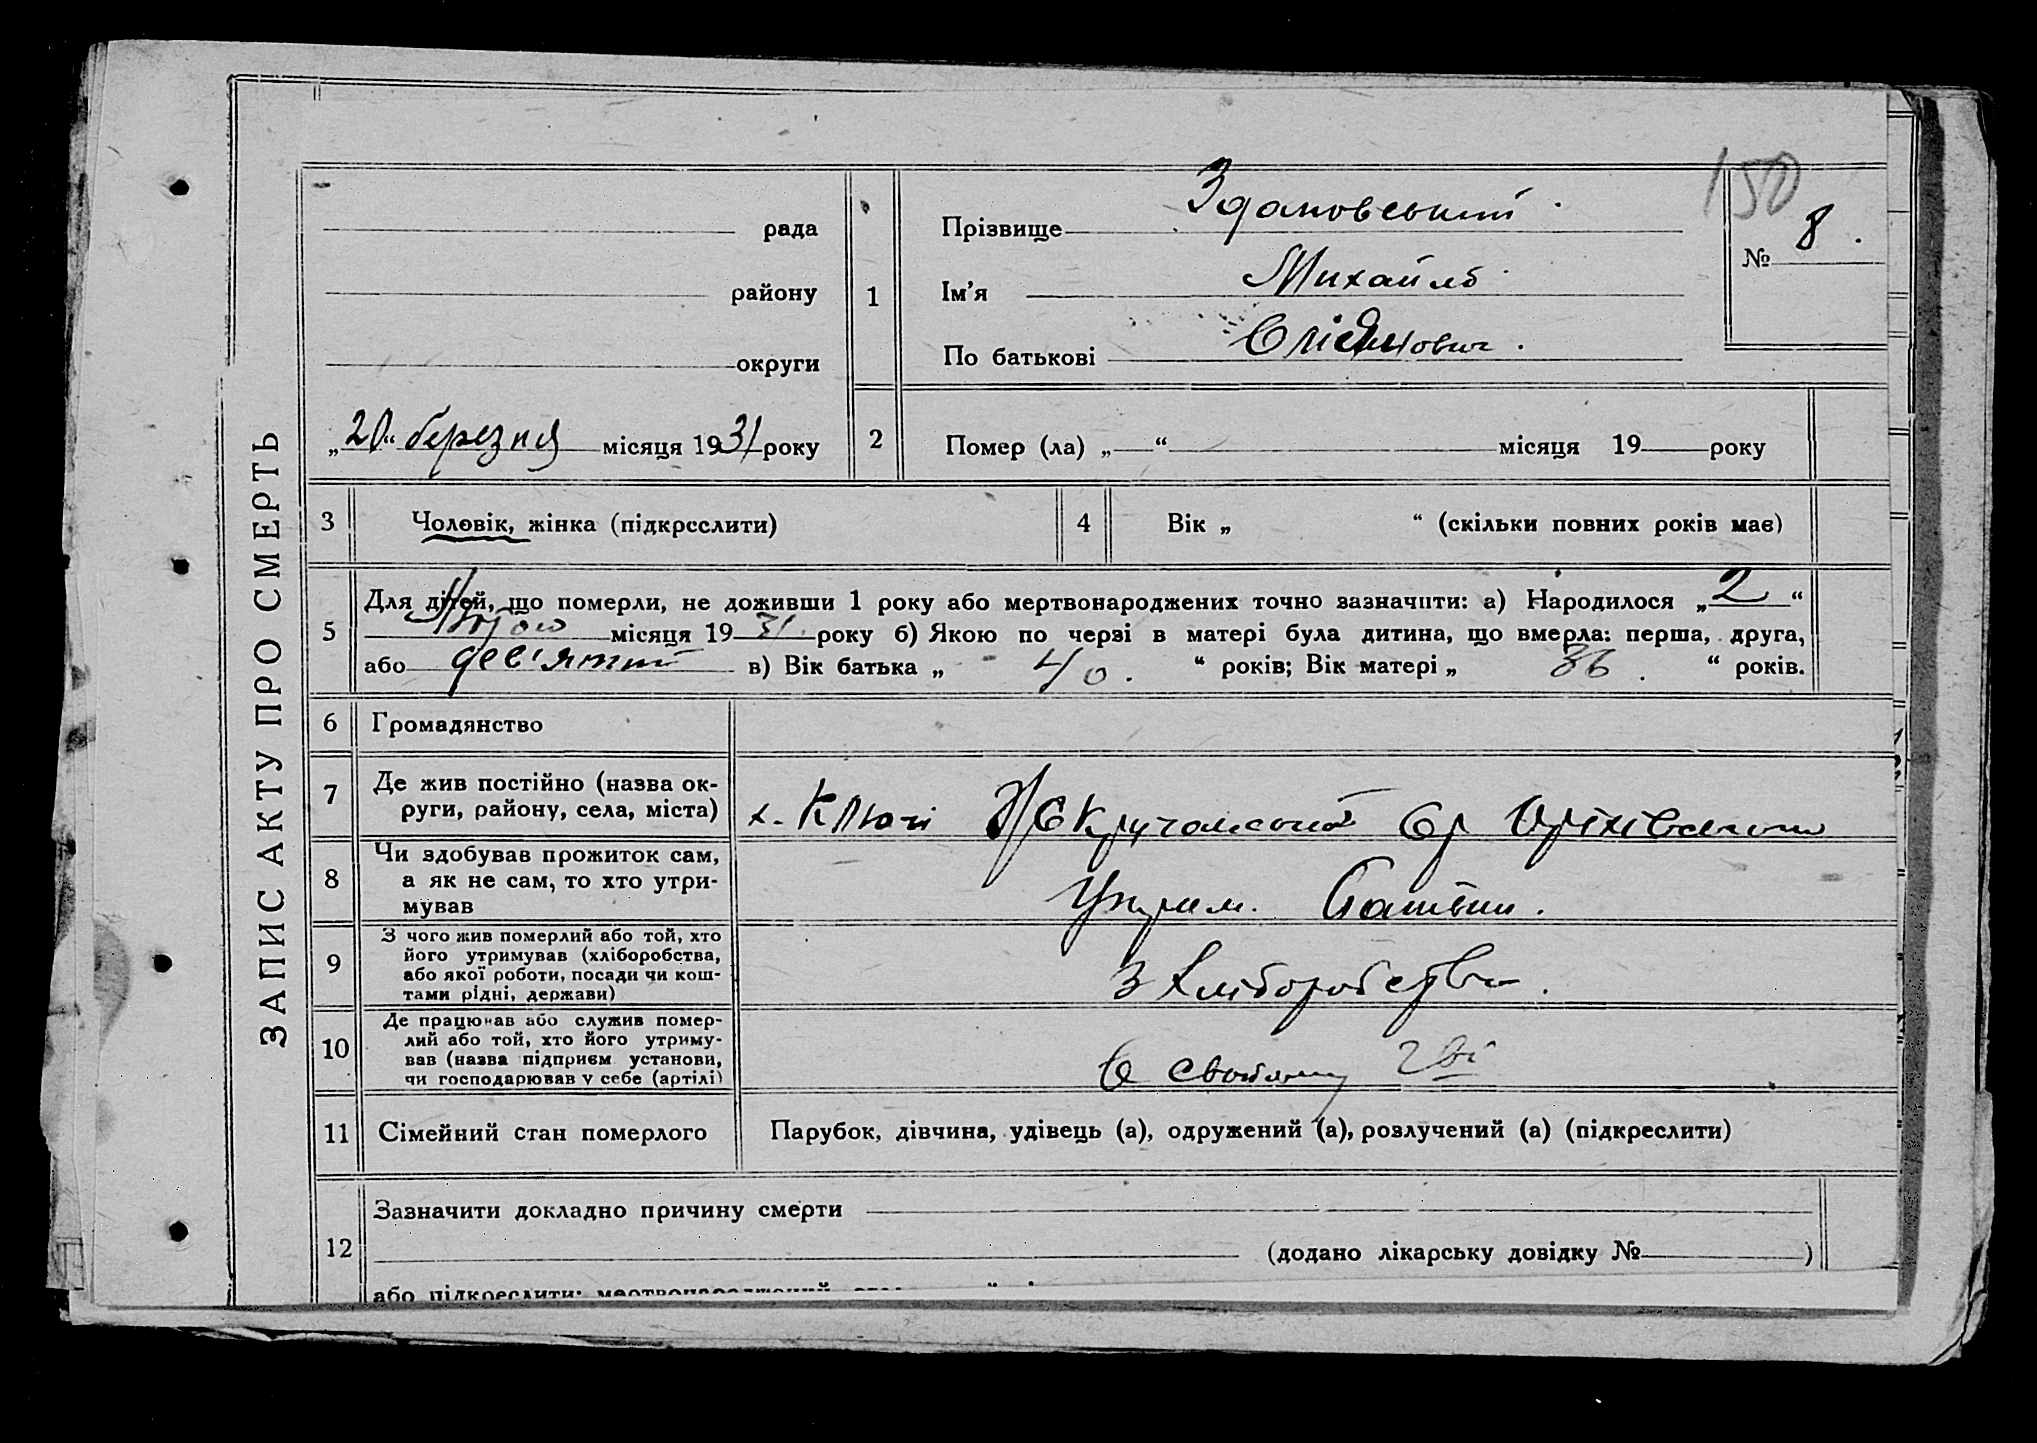 ЗАПИС АКТУ ПРО СМЕРТЬ
150
рада
району
округи
„20“ березня місяця 1931 року
1
Прізвище Здановський
Ім'я Михайло
По батькові
№ 8.
2
Помер (ла) „ “ місяця 19 року
3
Чоловік, жінка (підкреслити)
4
Вік „ “ (скільки повних років має)
5
Для дітей, що померли, не доживши 1 року або мертвонароджених точно зазначити: а) Народилося „2“
місяця 1931 року б) Якою по черзі в матері була дитина, що вмерла: перша, друга,
або дев'ятий в) Вік батька „ 40. “ років; Вік матері „ 36. “ років.
6
Громадянство
7
Де жив постійно (назва ок-
руги, району, села, міста)
х. Ключі
8
Чи здобував прожиток сам,
а як не сам, то хто утри-
мував
Утрим. Батьки.
9
З чого жив померлий або той, хто
його утримував (хліборобства,
або якої роботи, посади чи кош-
тами рідні, держави)
з хліборобства.
10
Де працював або служив помер-
лий або той, хто його утриму-
вав (назва підприєм установи,
чи господарював у себе (артілі)
В своєму г-ві
11
Сімейний стан померлого
Парубок, дівчина, удівець (а), одружений (а), розлучений (а) (підкреслити)
12
Зазначити докладно причину смерти
(додано лікарську довідку № )
або підкреслити: мертвонароджений